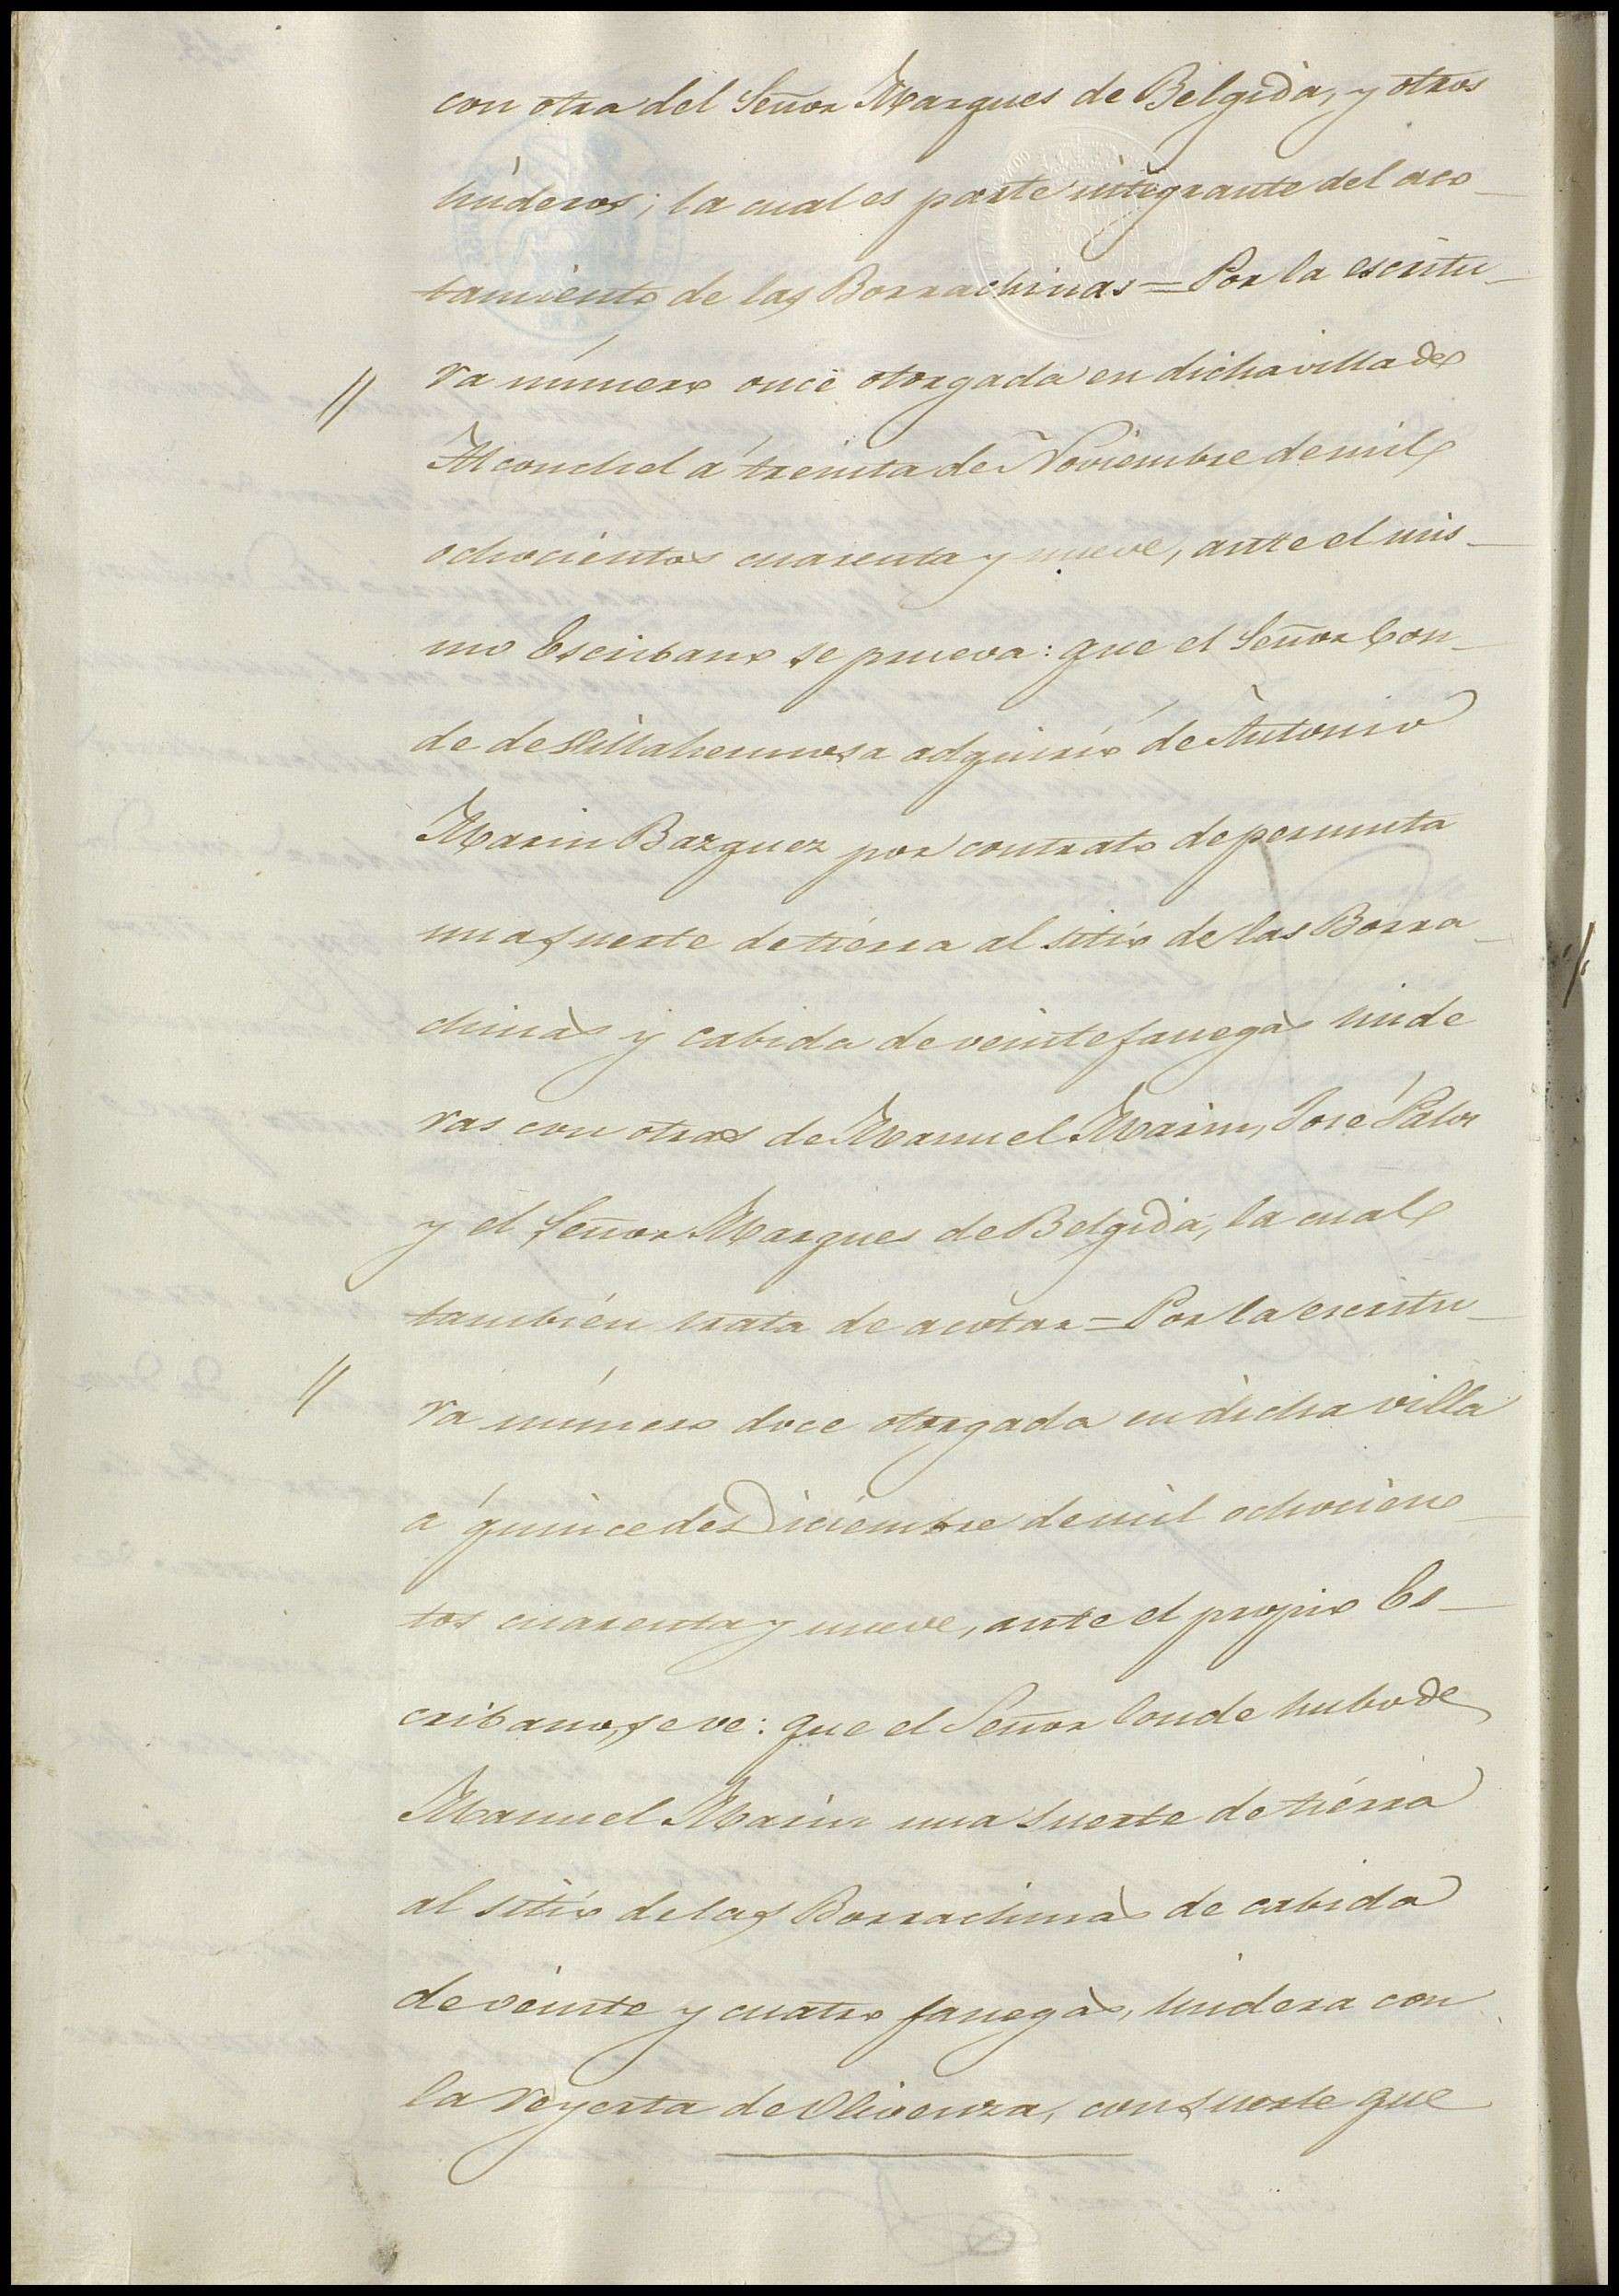 con otra del Señor Marques de Belgida, y otros
linderos; la cual es parte integrante del aco-
tamiento de las Borrachinas = Por la escritu-
// ra número once otorgada en dicha villa de
Alconchel á treinta de Noviembre de mil
ochocientos cuarenta y nueve, ante el mis-
mo Escribano se prueva: que el Señor Con-
de de Villahermosa adquirió de Antonio
Marin Bazquez por contrato de permuta
una suerte de tierra al sitio de las Borra-
chinas y cabida de veinte fanegas linde
ras con otras de Manuel Marin, José
y el Señor Marques de Belgida, la cual
también trata de acotar = Por la escritu-
// ra número doce otorgada en dicha villa
á quince de Diciembre de mil ochocien-
tos cuarenta y nueve, ante el propio Es-
cribano, se ve: que el Señor Conde hubo de
Manuel Marin una suerte de tierra
al sitio de las Borrachinas de cabida
de veinte y cuatro fanegas, lindera con
la reyerta de Olivenza, con suerte que